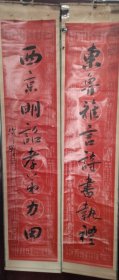 東魯雅言詩書執禮
西京明詔孝弟力田